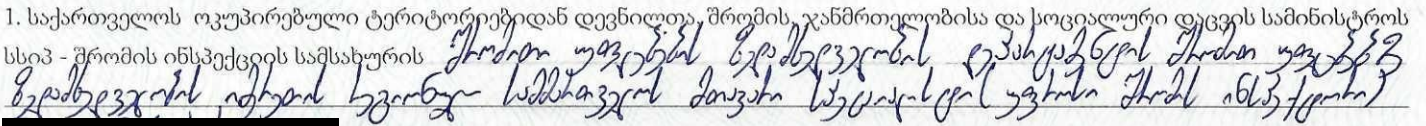 1. საქართველოს ოკუპირებული ტერიტორიებიდან დევნილთა, შრომის, ჯანმრთელობისა და სოციალური დაცვის სამინისტროს
სსიპ - შრომის ინსპექციის სამსახურის შრომითი უფლებების ზედამხედველობის დეპარტამენტის შრომითი უფლებების
ზედამხედველობის იმერეთის რეგიონული სამმართველოს მთავარი სპეციალისტი (უფროსი შრომის ინსპექტორი)